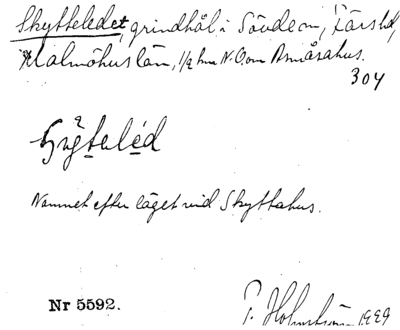 Skytteledet, grindhål i Sövde sn, Färs hd,
Malmöhus län, 1/2 km N.O. om Assmåsahus.
304
Namnet efter läget vid Skyttahus.
Nr 5592. P. Holmström 1929